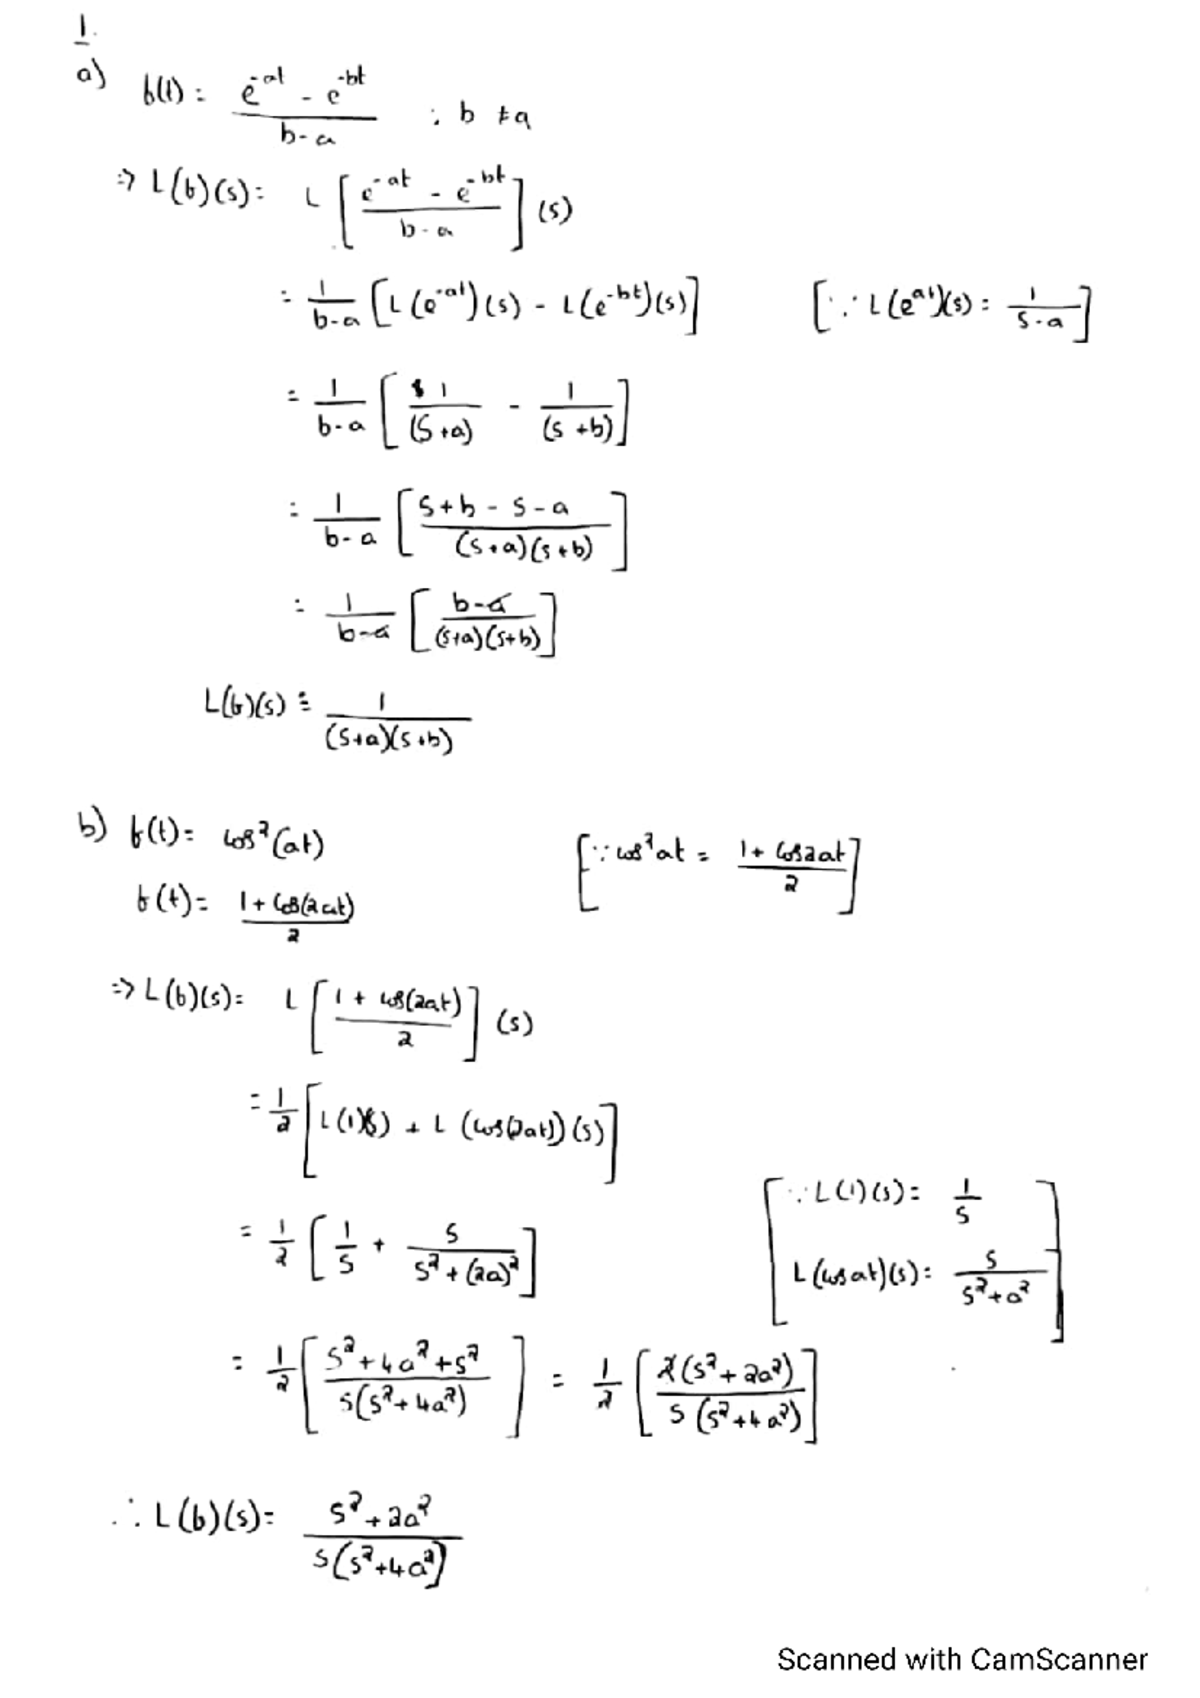 1.
a) f(t) = (e^-at - e^-bt)/(b-a) ; b ≠ a
=> L(f)(s) = L [(e^-at - e^-bt)/(b-a)] (s)
= 1/(b-a) [L(e^-at)(s) - L(e^-bt)(s)] [∵ L(e^at)(s) = 1/(s-a)]
= 1/(b-a) [1/(s+a) - 1/(s+b)]
= 1/(b-a) [(s+b-s-a)/((s+a)(s+b))]
= 1/(b-a) [(b-a)/((s+a)(s+b))]
L(f)(s) = 1/((s+a)(s+b))
b) f(t) = cos²(at) [∵ cos²at = (1+cos2at)/2]
f(t) = (1+cos(2at))/2
=> L(f)(s) = L [(1+cos(2at))/2] (s)
= 1/2 [L(1)(s) + L(cos(2at))(s)]
= 1/2 [1/s + s/(s²+(2a)²)] [∵ L(1)(s) = 1/s
L(cosat)(s) = s/(s²+a²)]
= 1/2 [(s²+4a²+s²)/(s(s²+4a²))] = 1/2 [2(s²+2a²)/(s(s²+4a²))]
∴ L(f)(s) = (s²+2a²)/(s(s²+4a²))
Scanned with CamScanner